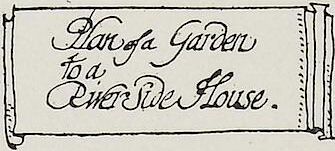 Plan of a Garden
to a
River Side House.